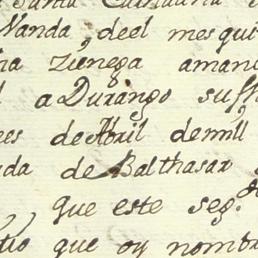 Santa
Vanda, de el mesqui
Zienega aman
a Durango suff
de Abril de mill
da de Balthasar
que este seg.
que oy nombr